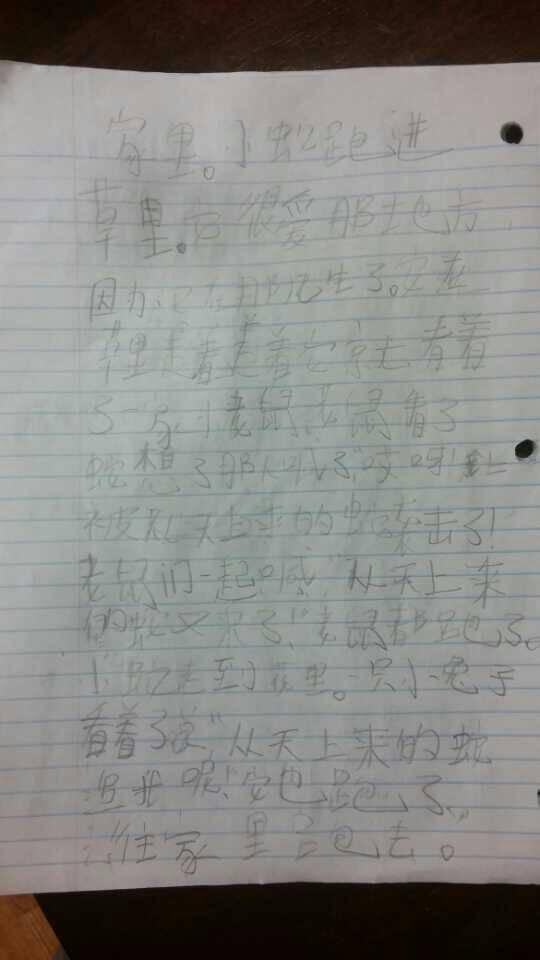 家里。小蛇跑进
草里。它很爱那地方,
因为它在那儿出生了。它在
草里走着走着它就看着
了一家小老鼠。老鼠看了
蛇想了那人喊了"哎呀!
被从天上来的蛇袭击了!
老鼠们一起喊"从天上来
的蛇又来了!"老鼠都跑了。
小蛇走到小花里。一只小兔子
看着了说"从天上来的蛇
在呢!"它也跑了。
往家里跑去。